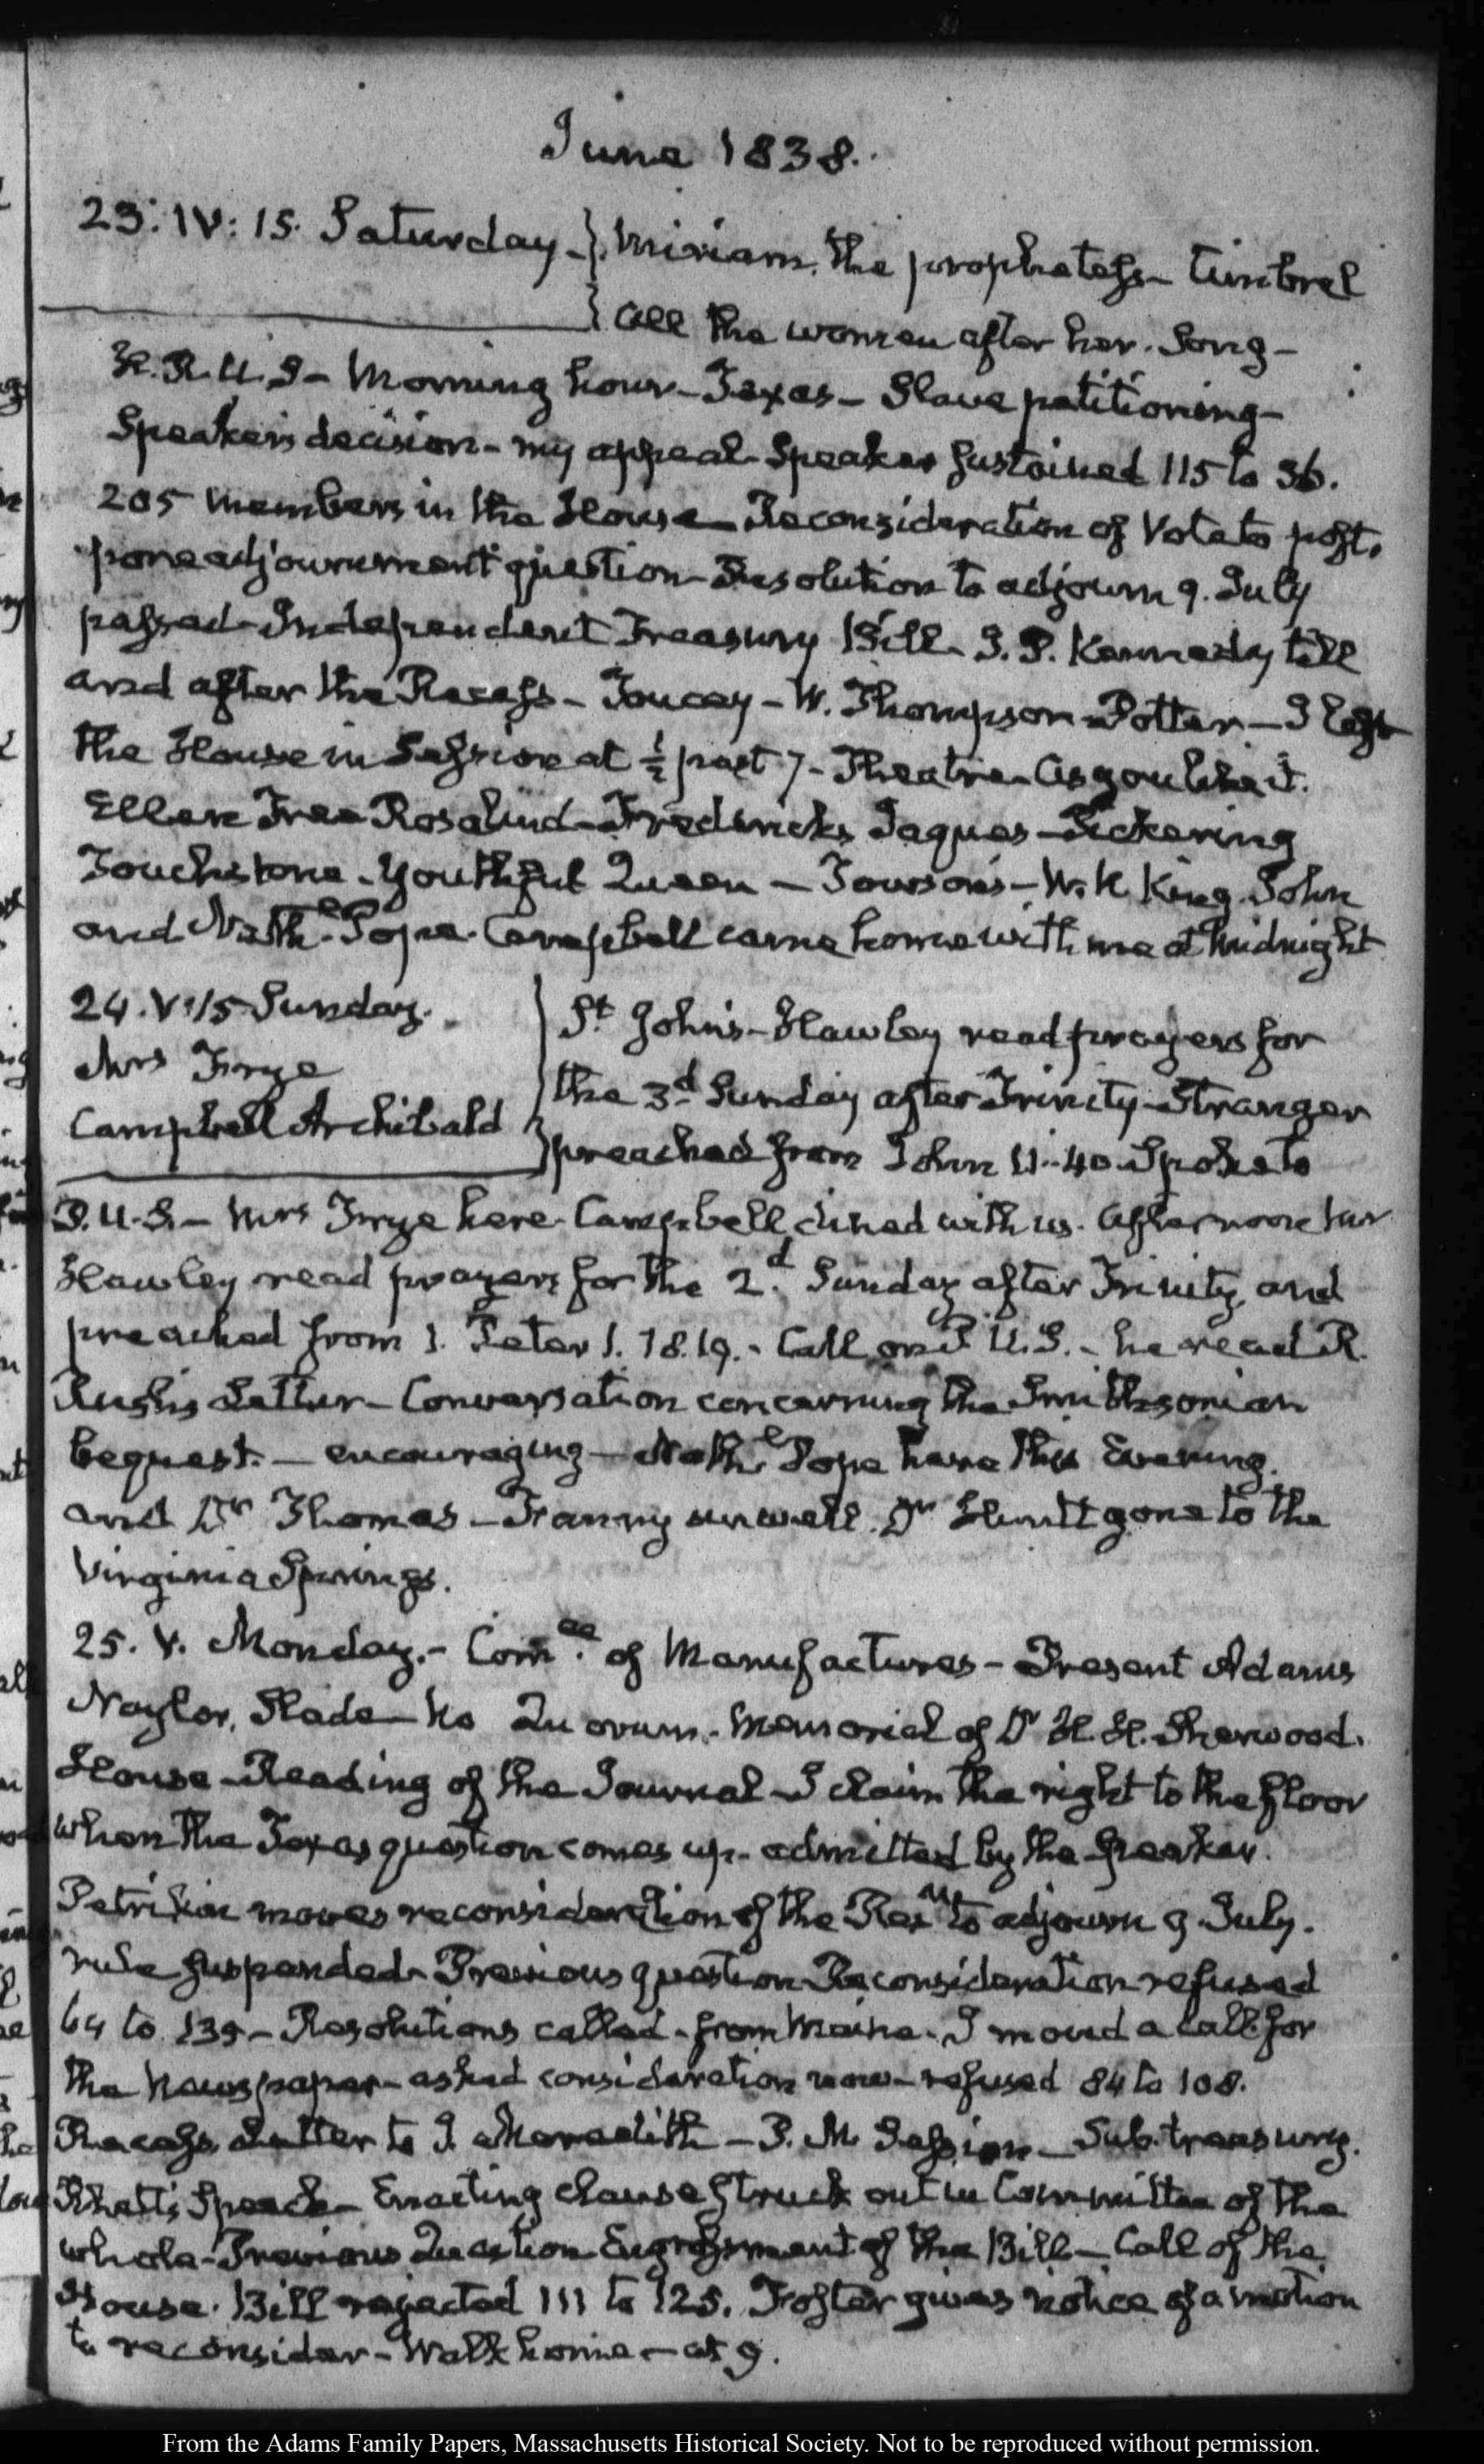 June 1838.
23. IV: 15. Saturday. } Miriam, the prophetess - timbrel
} all the women after her. Song -
H. R. U. S - Morning hour - Texas - Slave petitioning -
Speaker's decision - my appeal - Speaker sustained 115 to 36.
205 members in the House - Reconsideration of Vote to post-
pone adjournment question - Resolution to adjourn 9. July
passed - Independent Treasury Bill - J. P. Kennedy till
and after the Recess - Toucey - W. Thompson - Potter - I left
the House in Session at ½ past 7 - Theatre - As you like it.
Ellen Tree Rosalind - Fredericks Jaques - Pickering
Touchstone - Youthful Queen - Towson's - W. R. King. John
and Nathl. Pope. Campbell came home with me at Midnight
24. V: 15 Sunday.
Mrs Frye
Campbell Archibald
} St John's - Hawley read prayers for
the 3d Sunday after Trinity - Stranger
preached from John 11. 40 Spoke to
P. U. S. - Mrs Frye here. Campbell dined with us. Afternoon Mr
Hawley read prayers for the 2d. Sunday after Trinity, and
preached from 1. Peter 1. 18. 19. - Call on P. U. S. - he read R.
Rush's Letter - Conversation concerning the Smithsonian
bequest. - encouraging - Nathl Pope here this Evening.
and Dr Thomas - Fanny unwell. Dr Huntt gone to the
Virginia Springs.
25. V. Monday. - Comee. of Manufactures - Present Adams
Naylor, Slade - No Quorum. Memorial of Dr H. H. Sherwood.
House - Reading of the Journal - I claim the right to the floor
when the Texas question comes up - admitted by the Speaker.
Petrikin moves reconsideration of the Resn to adjourn 9 July.
rule suspended - Previous question - Reconsideration refused
64 to 139 - Resolutions called - from Maine. I moved a call for
the Newspaper - asked consideration now - refused 84 to 108.
Recess. Letter to J. Meredith - P. M. Session - Sub. treasury.
Rhett's Speech - Enacting clause struck out in Committee of the
whole - Previous Question Engrossment of the Bill - Call of the
House. Bill rejected 111 to 125. Foster gives notice of a motion
to reconsider - Walk home - at 9.
From the Adams Family Papers, Massachusetts Historical Society. Not to be reproduced without permission.